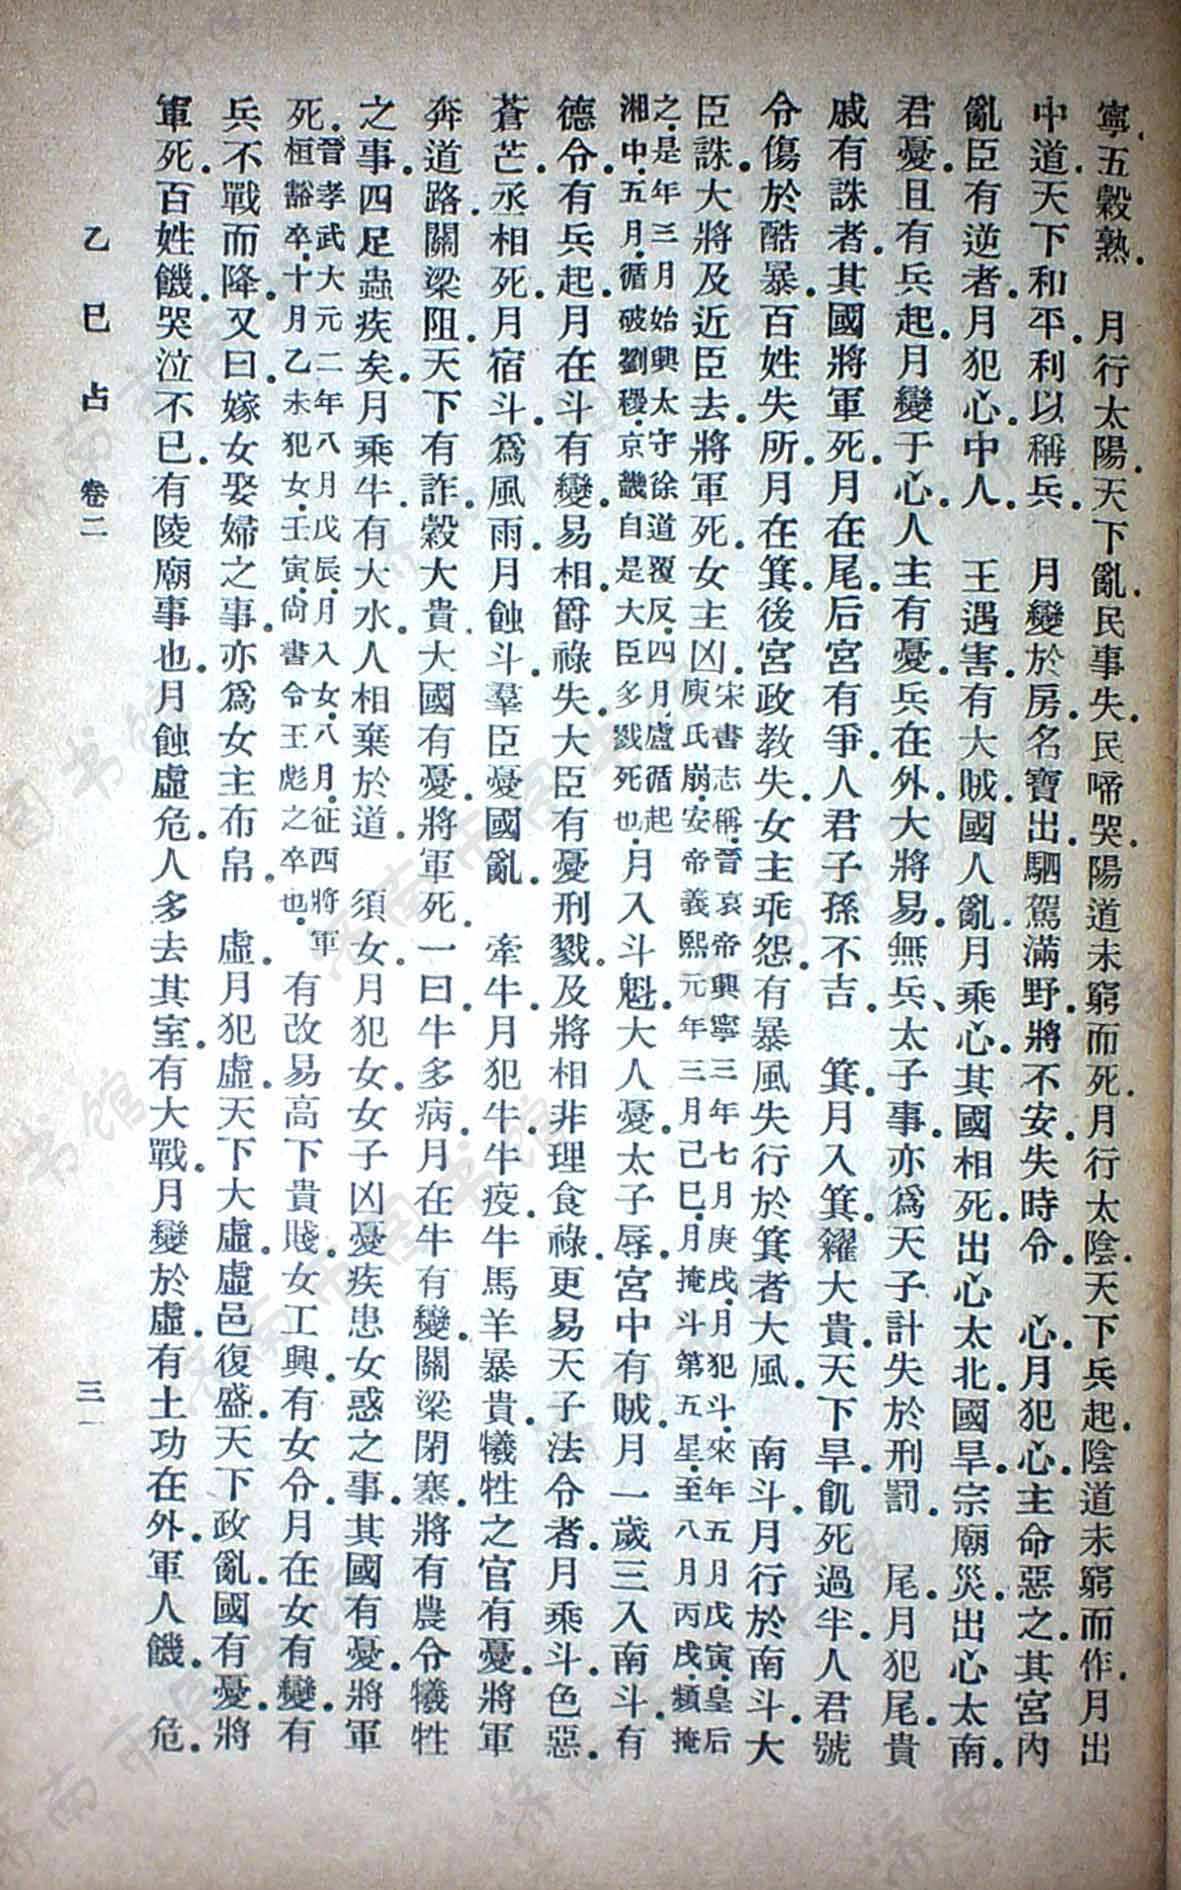 寧.五穀熟.　月行太陽.天下亂.民事失.民啼哭.陽道未窮而死.月行太陰.天下兵起.陰道未窮而作.月出
中道.天下和平.利以稱兵.　月變於房.名寶出.駟駕滿野.將不安.失時令.　心.月犯心.主命惡之.其宮內
亂.臣有逆者.月犯心.中人.　王遇害.有大賊.國人亂.月乘心.其國相死.出心太北.國旱.宗廟災.出心太南.
君憂.且有兵起.月變于心.人主有憂.兵在外.大將易.無兵、太子事.亦爲天子計失於刑罰.　尾.月犯尾.貴
戚有誅者.其國將軍死.月在尾.后宮有爭.人君子孫不吉.　箕.月入箕.糴大貴.天下旱.飢死過半.人君號
令傷於酷暴.百姓失所.月在箕.後宮政教失.女主乖怨.有暴風失行於箕者大風.　南斗.月行於南斗.大
臣誅.大將及近臣去.將軍死.女主凶.宋書志稱.晉哀帝興寧三年七月庚戌.月犯斗.來年五月戊寅.皇后
庾氏崩.安帝義熙元年三月己巳.月掩斗第五星.至八月丙戌.頻掩
之.是年三月始興太守徐道覆反.四月盧循起
湘中.五月.循破劉穆.京畿自是大臣多戮死也.月入斗魁.大人憂.太子辱.宮中有賊.月一歲三入南斗.有
德令.有兵起.月在斗有變.易相.爵祿失.大臣有憂刑戮.及將相非理食祿.更易天子法令者.月乘斗.色惡.
蒼芒.丞相死.月宿斗.爲風雨.月蝕斗.羣臣憂.國亂.　牽牛.月犯牛.牛疫.牛馬羊暴貴.犧牲之官有憂.將軍
奔.道路.關梁阻.天下有詐.穀大貴.大國有憂.將軍死.一曰.牛多病.月在牛有變.關梁閉塞.將有農令犧牲
之事.四足蟲疾矣.月乘牛.有大水.人相棄於道.　須女.月犯女.女子凶.憂疾患女惑之事.其國有憂.將軍
死.晉孝武大元二年八月戊辰.月入女.八月.征西將軍
桓豁卒.十月乙未犯女.壬寅.尙書令王彪之卒也.有改易高下貴賤.女工興.有女令.月在女有變.有
兵不戰而降.又曰.嫁女娶婦之事.亦爲女主布帛.　虛.月犯虛.天下大虛.虛邑復盛.天下政亂.國有憂.將
軍死.百姓饑.哭泣不已.有陵廟事也.月蝕虛危.人多去其室.有大戰.月變於虛.有土功在外.軍人饑.　危.
乙巳占　卷二　三一